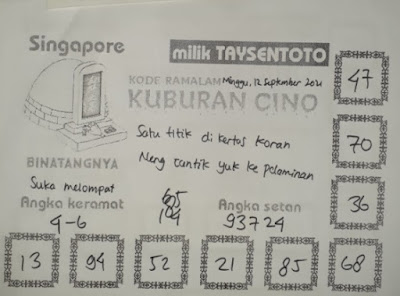 Singapore
milik TAYSENTOTO
KODE RAMALAN Minggu, 12 September 2021
KUBURAN CINO
Satu titik di kertas koran
Neng cantik yuk ke pelaminan
BINATANGNYA
Suka melompat
Angka keramat
4-6
Angka setan
93724
47
70
36
13
94
52
21
85
68